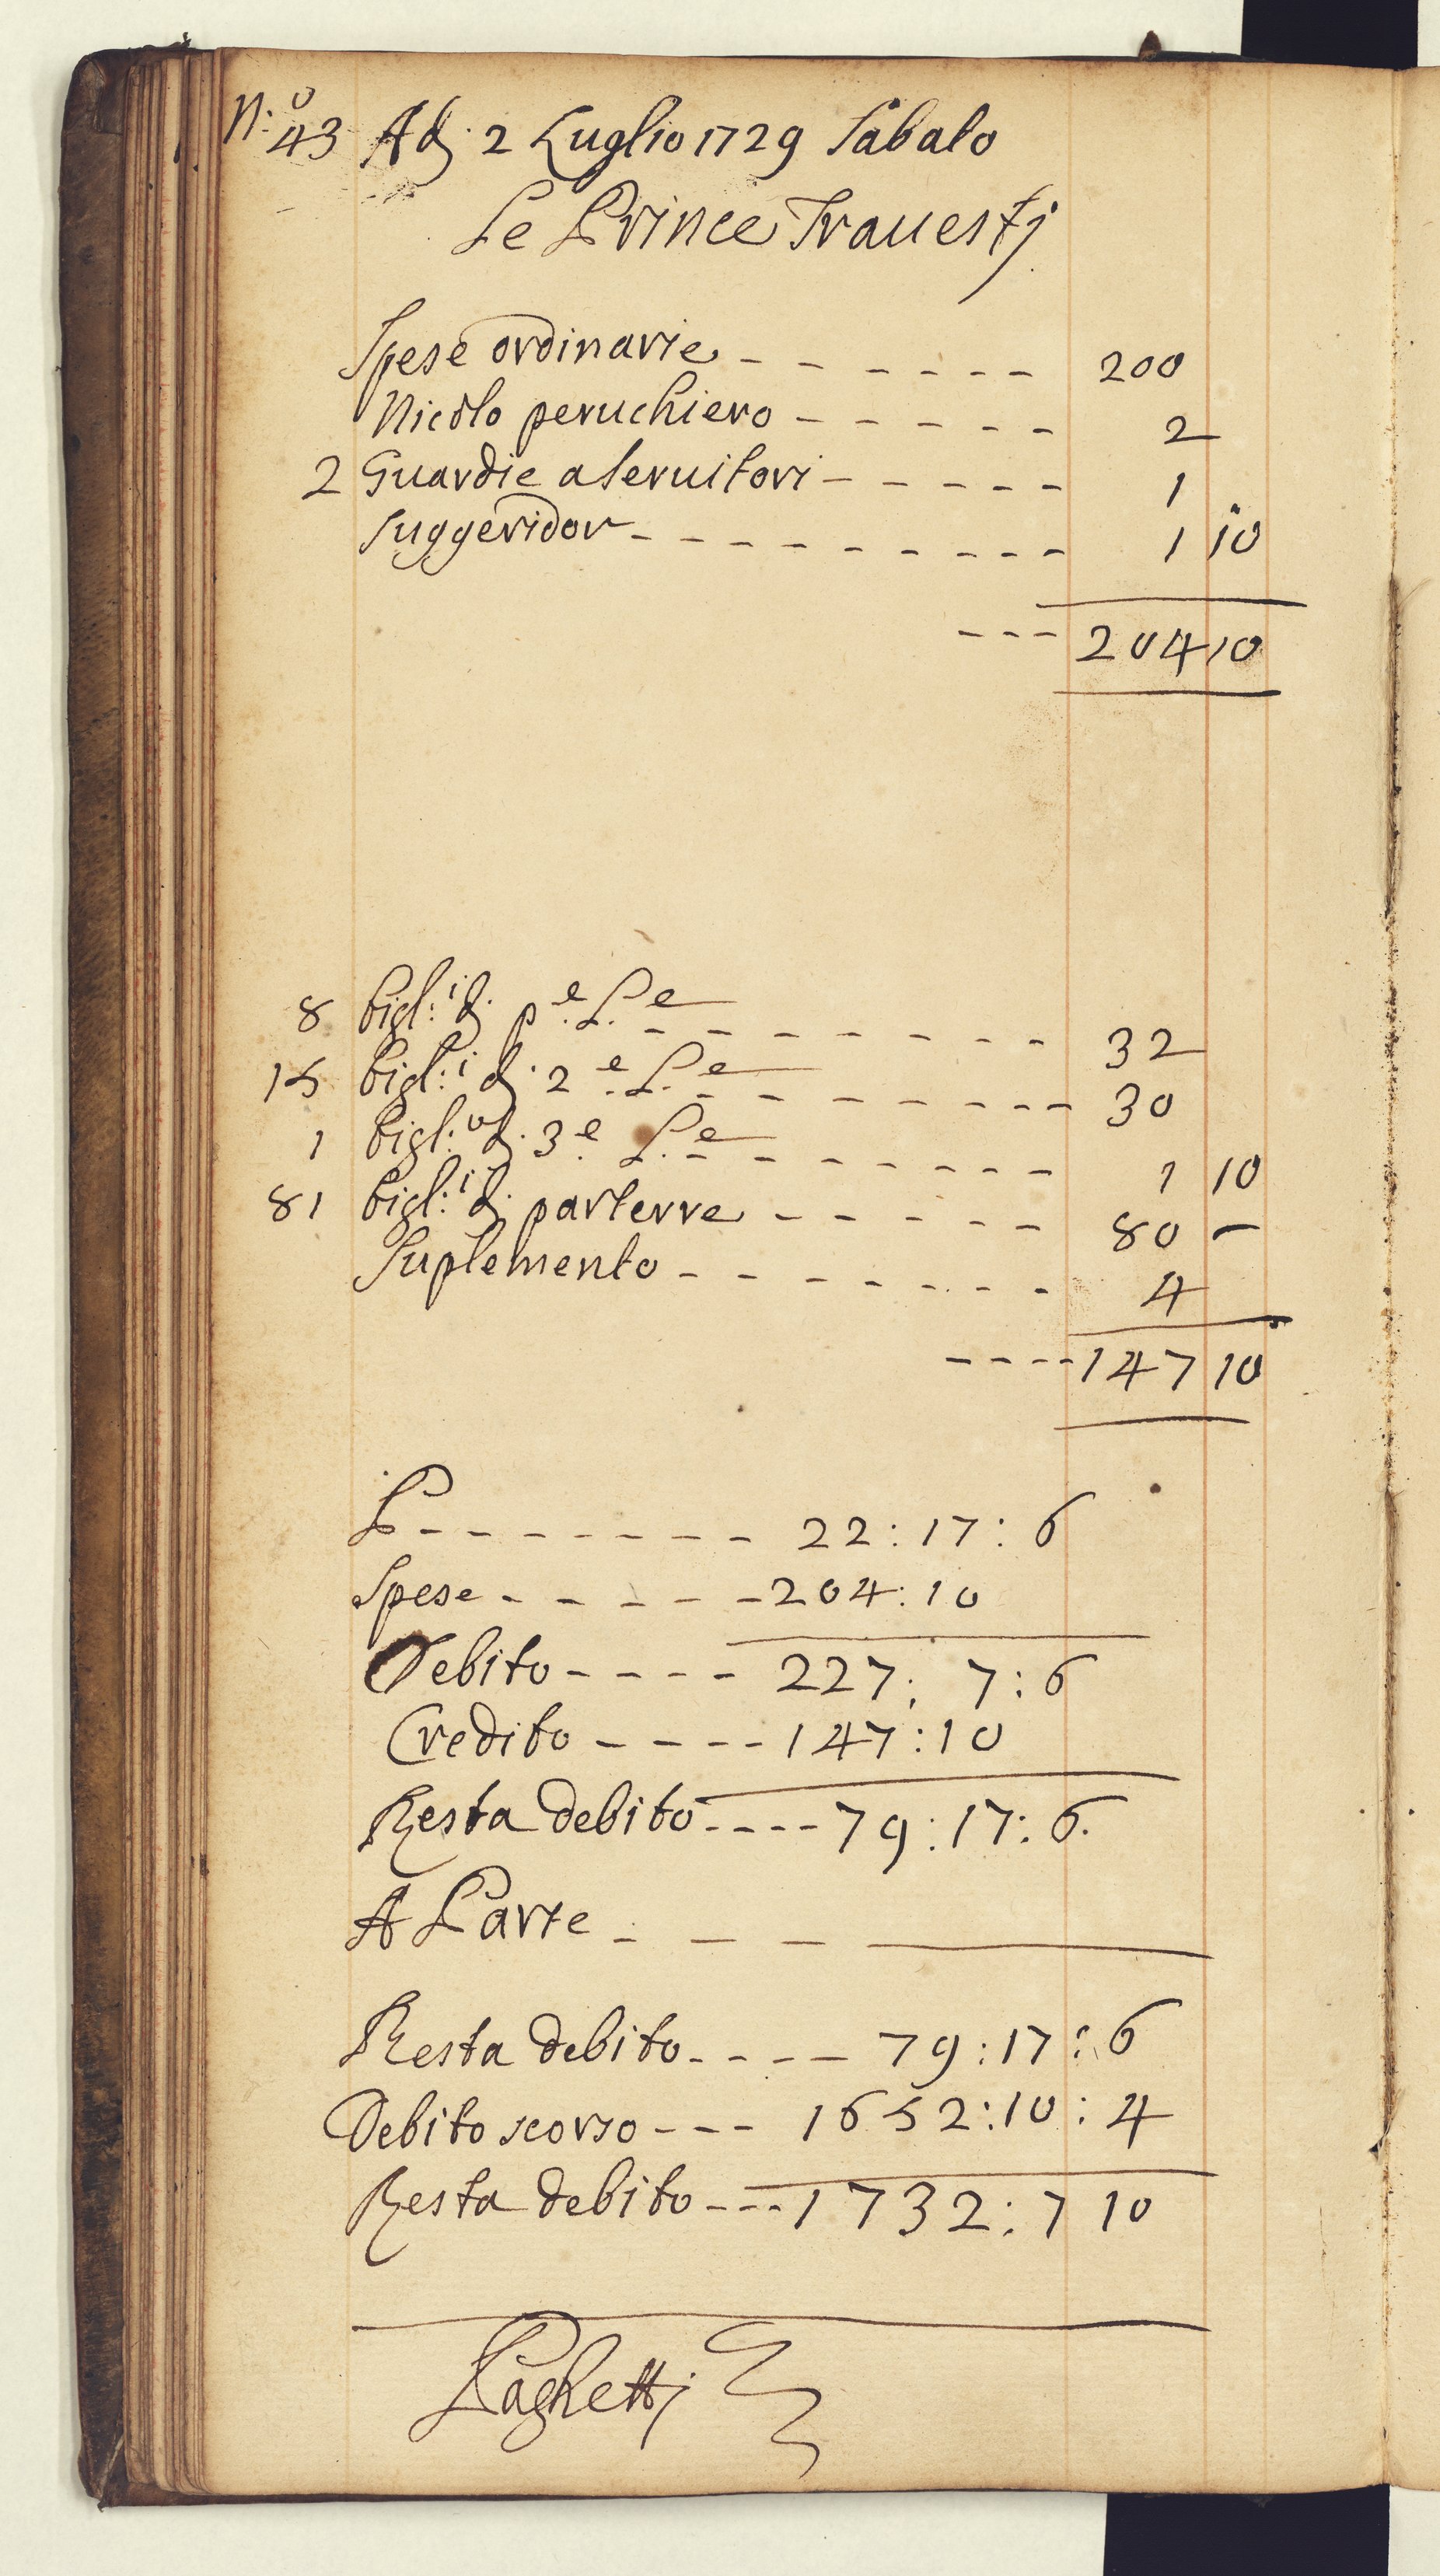 N:o 43 Adj 2 Luglio 1729 Sabato
Le Prince Trauestj
Spese ordinarie - - - - - - 200
Nicolo peruchiero - - - - - 2
2 Guardie a Seruitori - - - - - 1
Suggeridor - - - - - - - - - 1 10
- - - 204 10
8 bigl:i dj pe Le - - - - - - - - 32
15 bigl:i dj 2e Le - - - - - - - - 30
1 bigl:o dj 3e Le - - - - - - - - 1 10
81 bigl:i dj parterre - - - - - 80 -
Suplemento - - - - - - - 4
- - - - 147 10
P - - - - - - - 22:17:6
Spese - - - - - 204:10
Debito - - - - 227: 7:6
Credito - - - - 147:10
Resta debito - - - - 79:17:6.
A Parte - - - -
Resta debito - - - - 79:17:6
Debito scorso - - - 1652:10:4
Resta debito - - - 1732:7 10
Paghettj